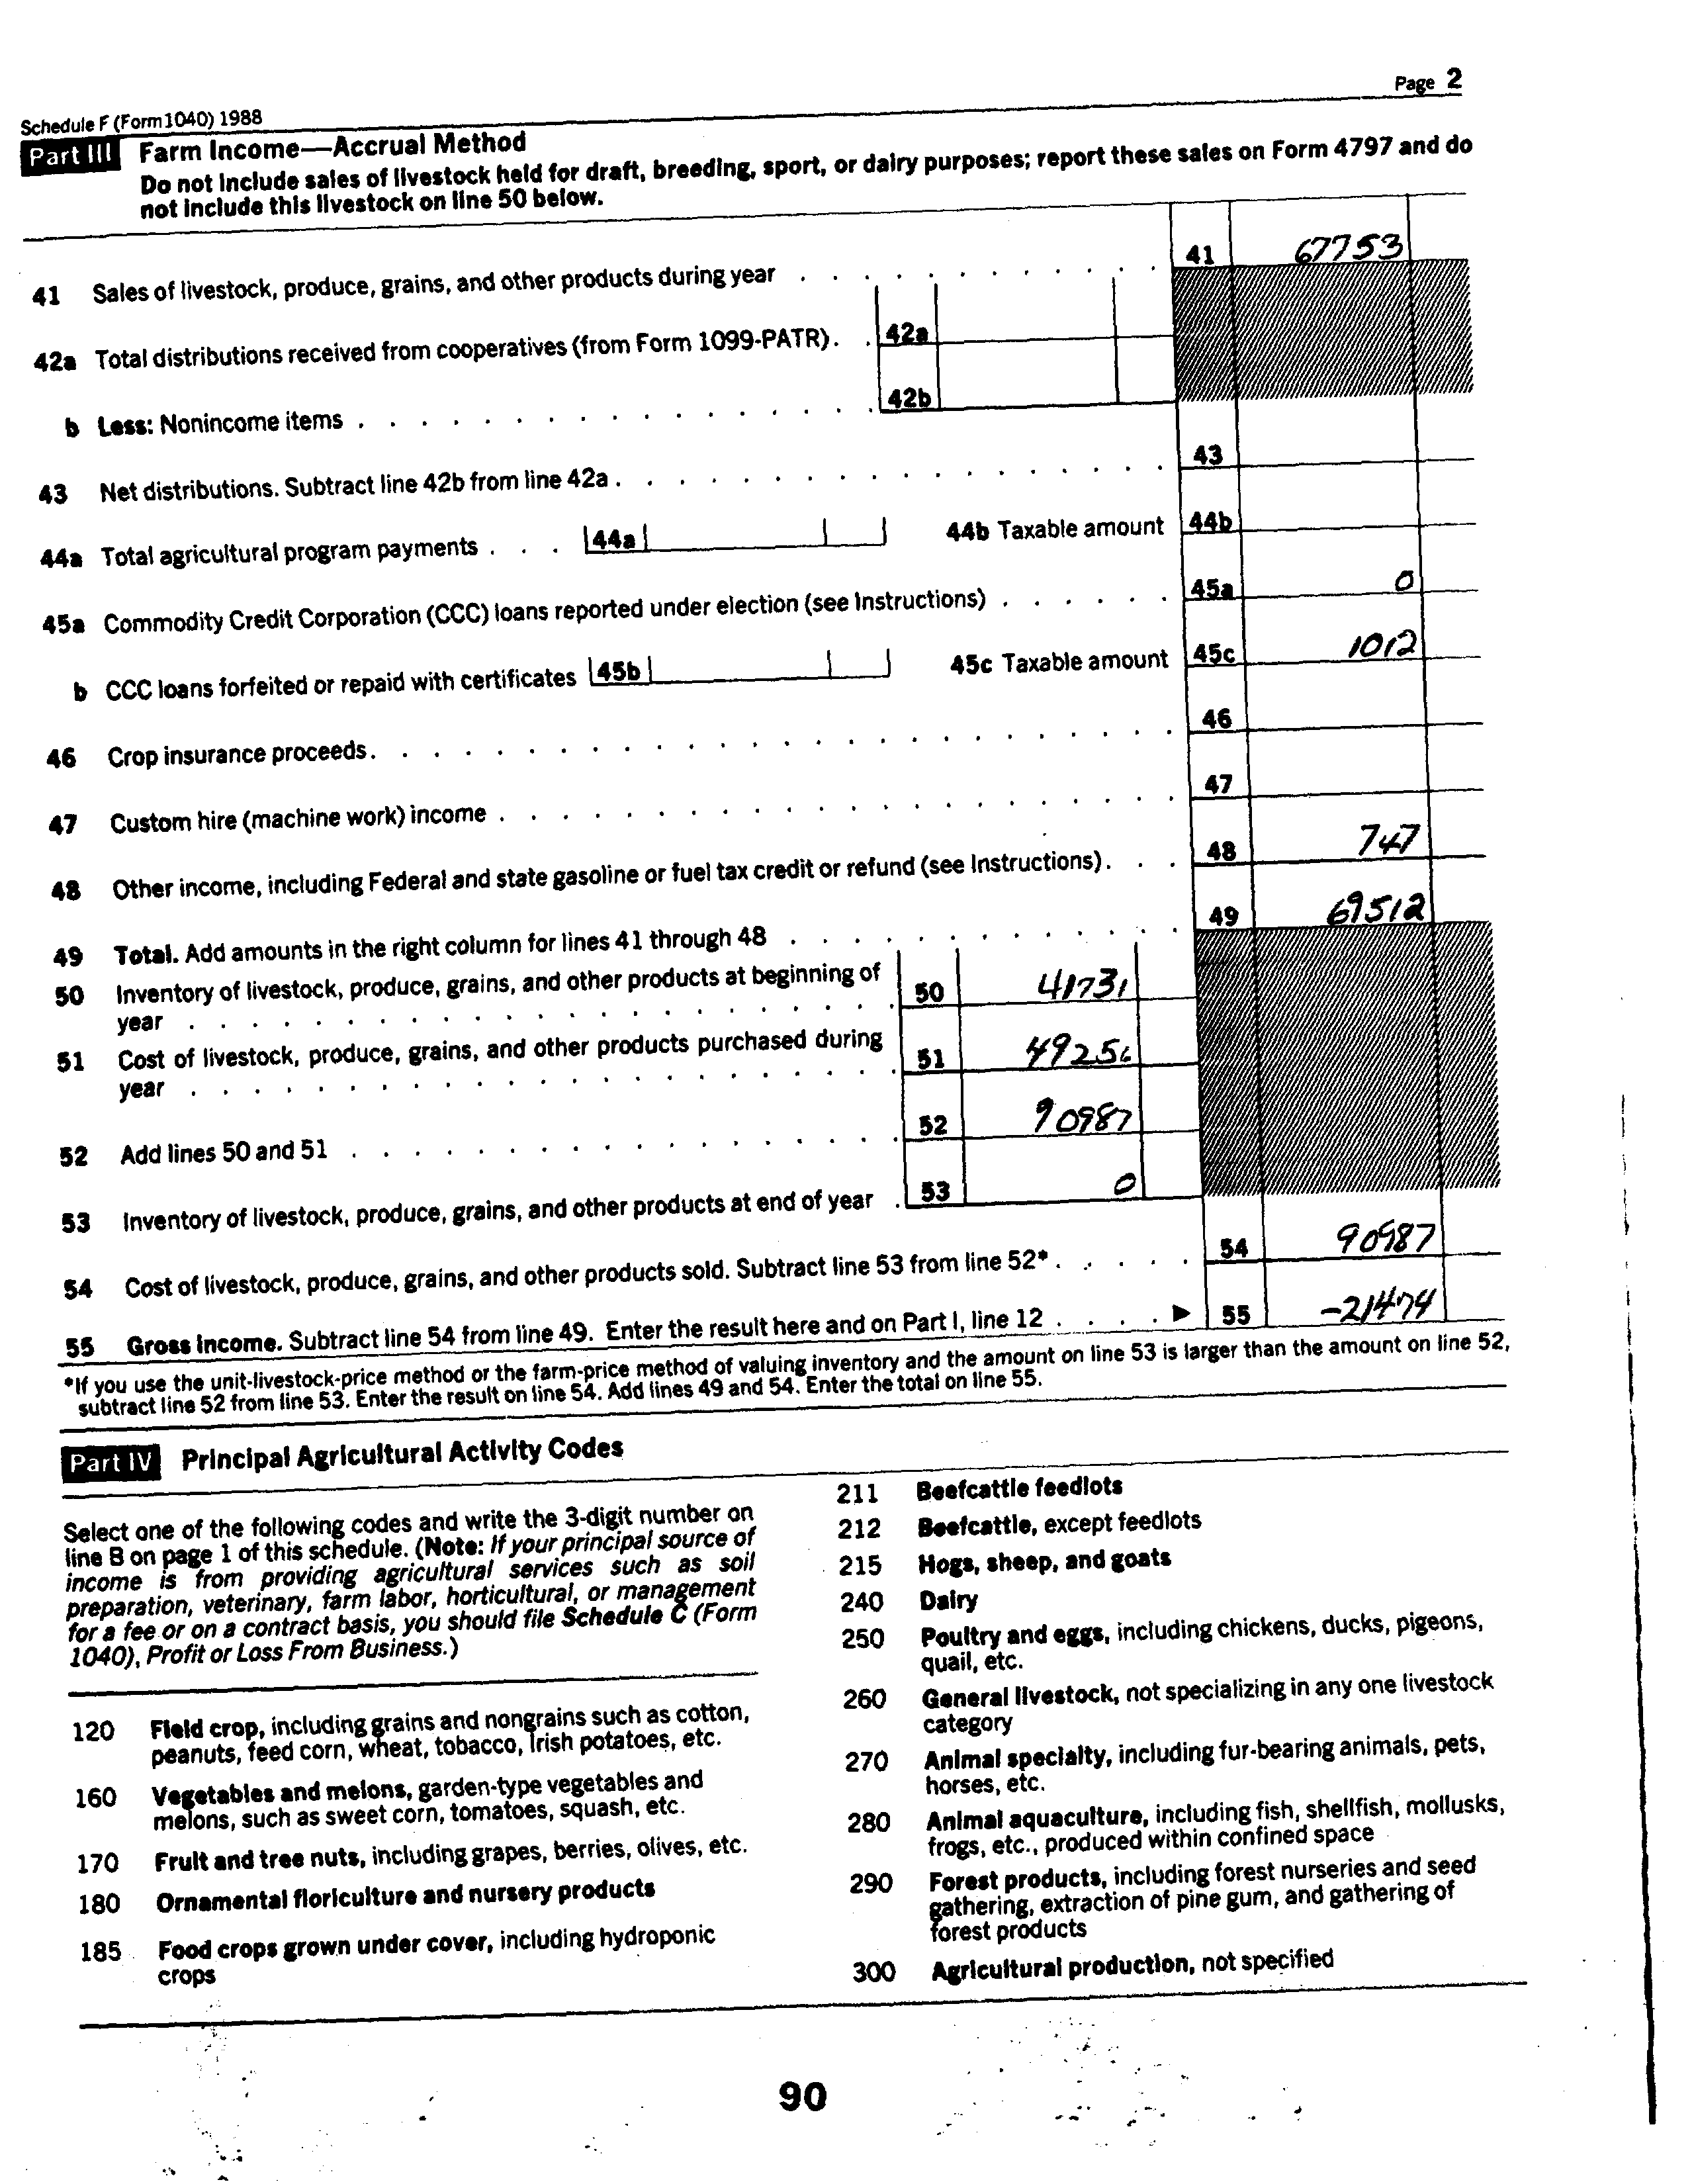 Page 2
Schedule F (Form 1040) 1988
Part III Farm Income—Accrual Method
Do not include sales of livestock held for draft, breeding, sport, or dairy purposes; report these sales on Form 4797 and do
not include this livestock on line 50 below.
41 Sales of livestock, produce, grains, and other products during year 41 67753
42a Total distributions received from cooperatives (from Form 1099-PATR). 42a
b Less: Nonincome items 42b
43 Net distributions. Subtract line 42b from line 42a 43
44a Total agricultural program payments 44a 44b Taxable amount 44b
45a Commodity Credit Corporation (CCC) loans reported under election (see Instructions) 45a 0
b CCC loans forfeited or repaid with certificates 45b 45c Taxable amount 45c 1012
46 Crop insurance proceeds 46
47 Custom hire (machine work) income 47
48 Other income, including Federal and state gasoline or fuel tax credit or refund (see Instructions) 48 747
49 Total. Add amounts in the right column for lines 41 through 48 49 69512
50 Inventory of livestock, produce, grains, and other products at beginning of
year 50 41731
51 Cost of livestock, produce, grains, and other products purchased during
year 51 49256
52 Add lines 50 and 51 52 90987
53 Inventory of livestock, produce, grains, and other products at end of year 53 0
54 Cost of livestock, produce, grains, and other products sold. Subtract line 53 from line 52* 54 90987
55 Gross income. Subtract line 54 from line 49. Enter the result here and on Part I, line 12 ▶ 55 -21474
*If you use the unit-livestock-price method or the farm-price method of valuing inventory and the amount on line 53 is larger than the amount on line 52,
subtract line 52 from line 53. Enter the result on line 54. Add lines 49 and 54. Enter the total on line 55.
Part IV Principal Agricultural Activity Codes
Select one of the following codes and write the 3-digit number on
line B on page 1 of this schedule. (Note: If your principal source of
income is from providing agricultural services such as soil
preparation, veterinary, farm labor, horticultural, or management
for a fee or on a contract basis, you should file Schedule C (Form
1040), Profit or Loss From Business.)
120 Field crop, including grains and nongrains such as cotton,
peanuts, feed corn, wheat, tobacco, Irish potatoes, etc.
160 Vegetables and melons, garden-type vegetables and
melons, such as sweet corn, tomatoes, squash, etc.
170 Fruit and tree nuts, including grapes, berries, olives, etc.
180 Ornamental floriculture and nursery products
185 Food crops grown under cover, including hydroponic
crops
211 Beefcattle feedlots
212 Beefcattle, except feedlots
215 Hogs, sheep, and goats
240 Dairy
250 Poultry and eggs, including chickens, ducks, pigeons,
quail, etc.
260 General livestock, not specializing in any one livestock
category
270 Animal specialty, including fur-bearing animals, pets,
horses, etc.
280 Animal aquaculture, including fish, shellfish, mollusks,
frogs, etc., produced within confined space
290 Forest products, including forest nurseries and seed
gathering, extraction of pine gum, and gathering of
forest products
300 Agricultural production, not specified
90